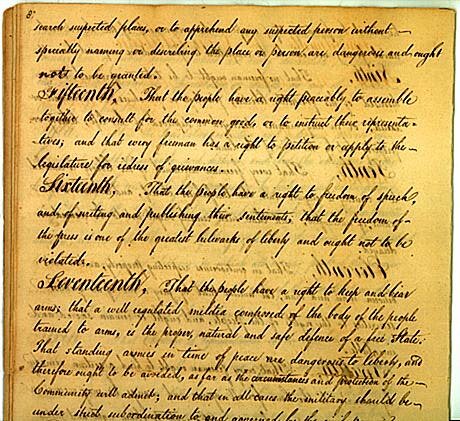 8
search suspected places, or to apprehend any suspected person without
specially naming or describing the place or person are dangerous and ought
not to be granted.
Fifteenth, That the people have a right peaceably to assemble
together to consult for the common good, or to instruct their representa-
tives; and that every freeman has a right to petition or apply to the
legislature for redress of grievances.
Sixteenth, That the people have a right to freedom of speech,
and of writing and publishing their sentiments; that the freedom of
the press is one of the greatest bulwarks of liberty and ought not to be
violated.
Seventeenth, That the people have a right to keep and bear
arms; that a well regulated militia composed of the body of the people
trained to arms, is the proper, natural and safe defence of a free State;
That standing armies in time of peace are dangerous to liberty, and
therefore ought to be avoided, as far as the circumstances and protection of the
Community will admit; and that in all cases the military should be
under strict subordination to and governed by the civil